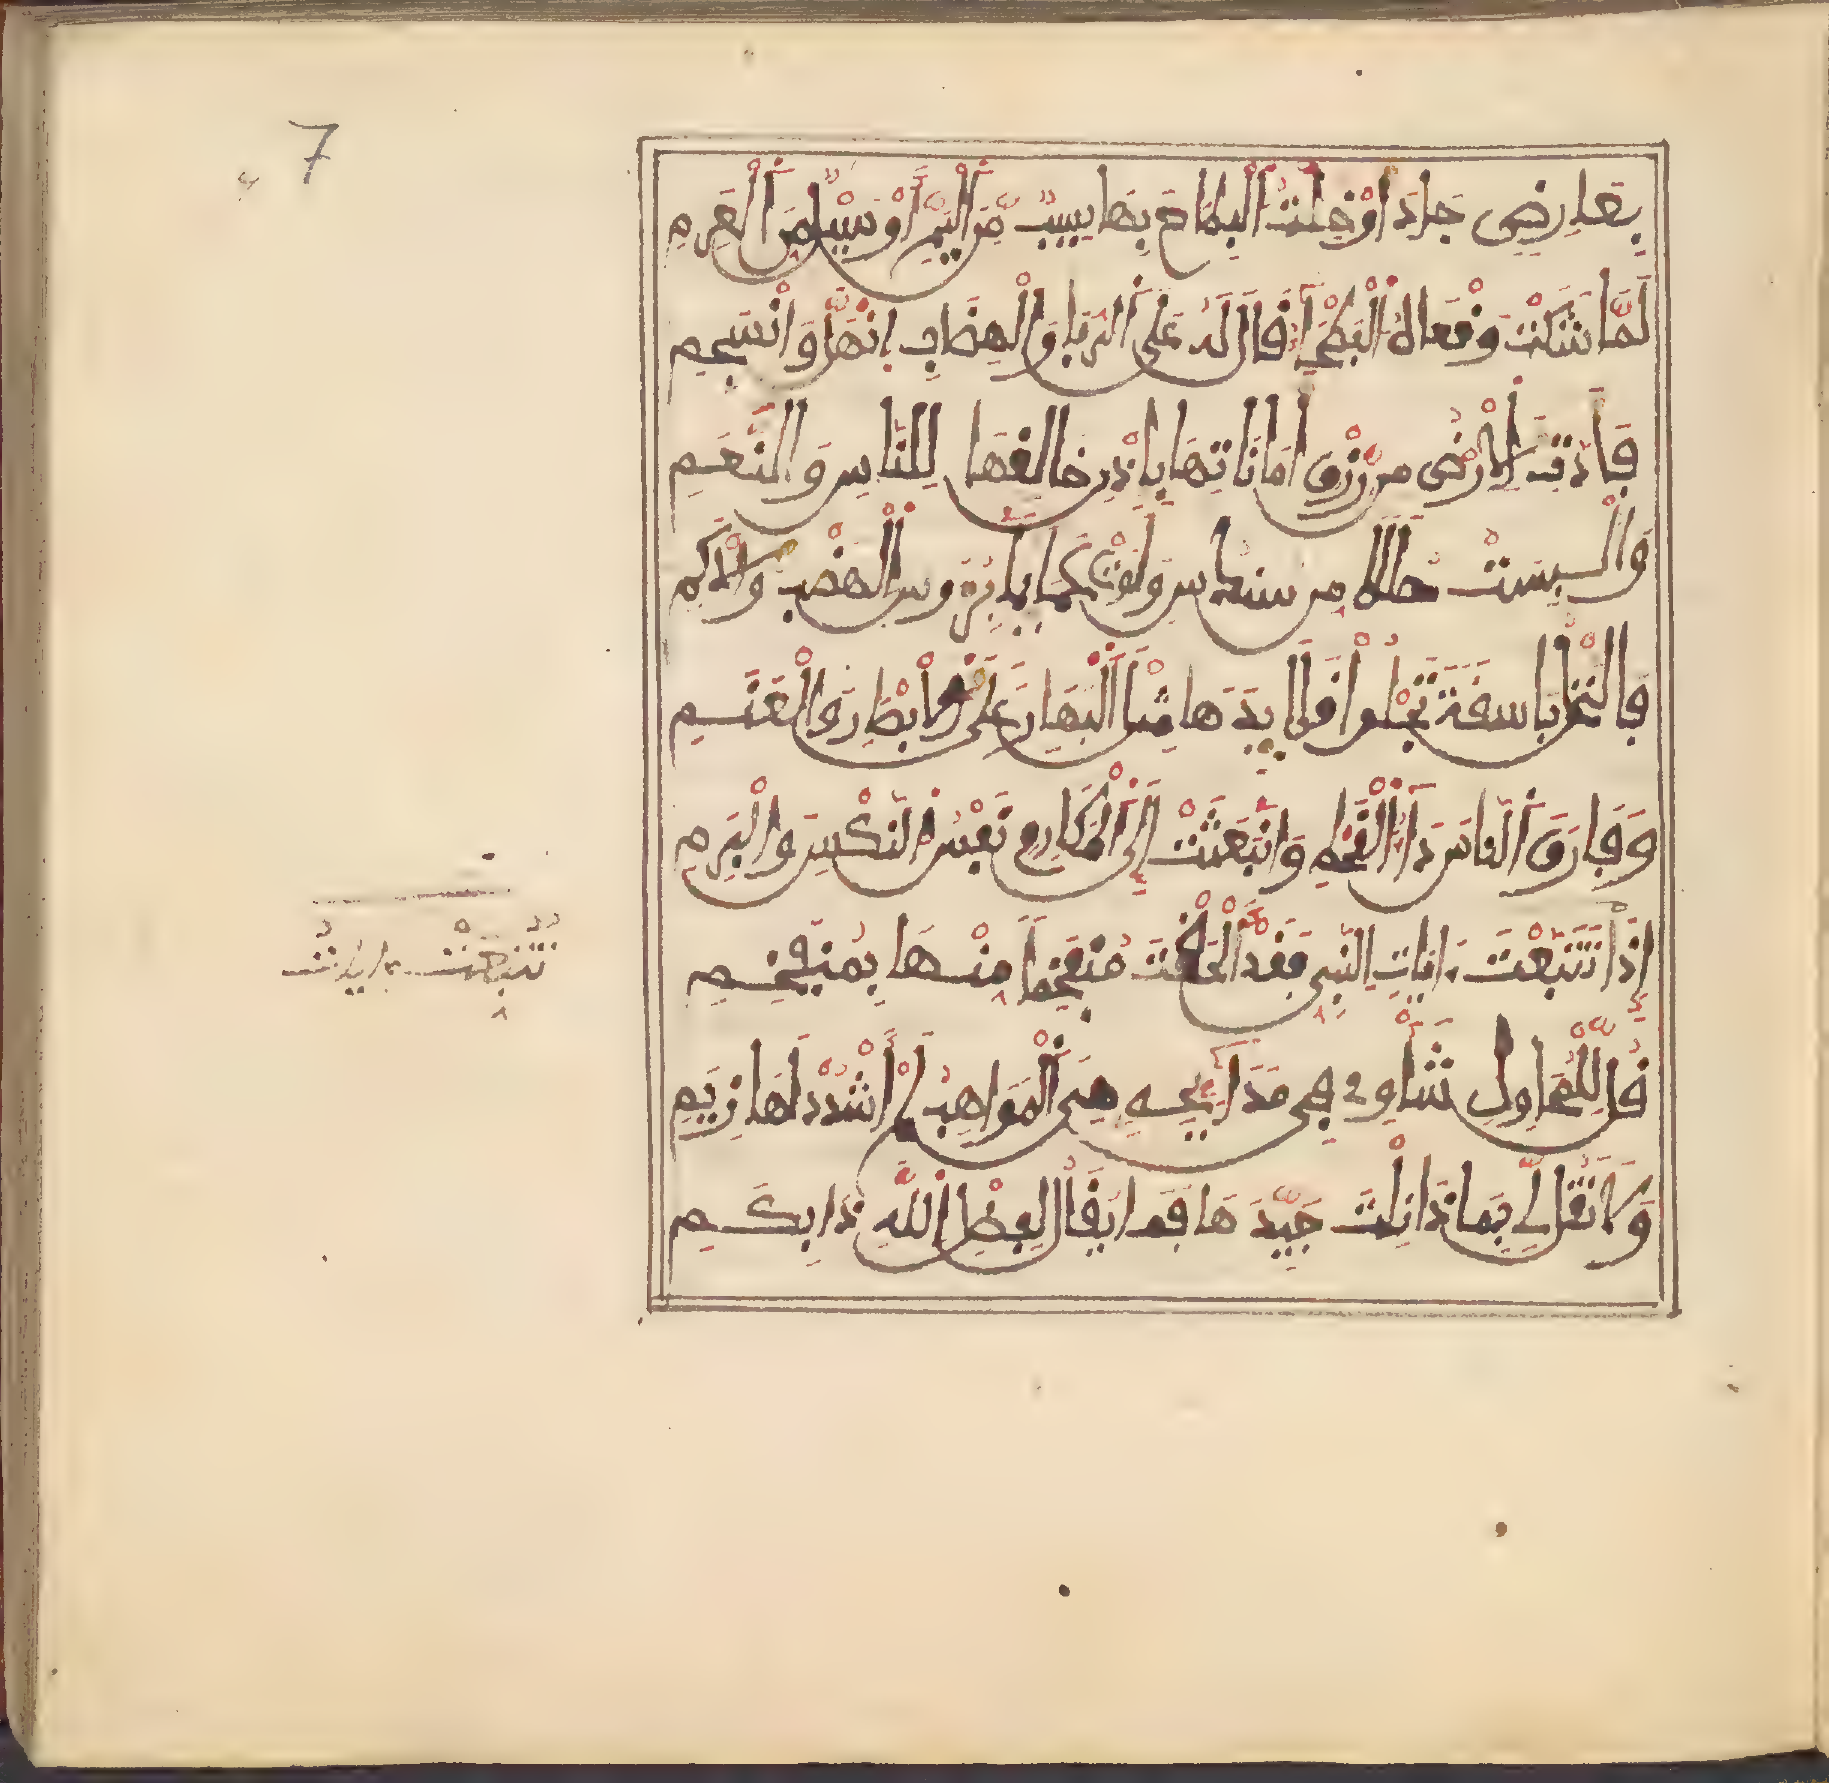 7
بعارض جاد أو خلت البطاح بها سيب من اليم أو سيل من العرم
لما شكت وقعه البطحا قال له على الربا والهضاب انهل وانسجم
فأدت الارض من رزق أماناتها بإذن خالقها للناس والنعم
وألبست حللا من سندس ولوت عمايما برءوس الهضب والاكم
فالنخل باسقة تجلوا قلايدها مثل البهار على والعنم
وفارق الناس داء القحط وانبعثت إلى المكارم نفس النكس والبرم
إذا تتبعت ءايات النبي فقد ألحقت منفخما منها بمنفخم
قل للمحاول شأو في مدايحه هي المواهب لم أشدد لها زيم
ولا تقل لي بماذا نلت جيدها فما يقال لفضل الله ذا بكم
تتبعت ءايات